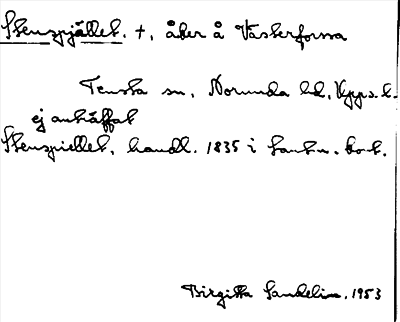 Stenspjället. +, åker å Västerforsa
Tensta sn, Norunda hd, Upps. l.
ej anträffat
Stenspiellet, handl. 1835 i Lantm. kont.
Birgitta Sandelin. 1953